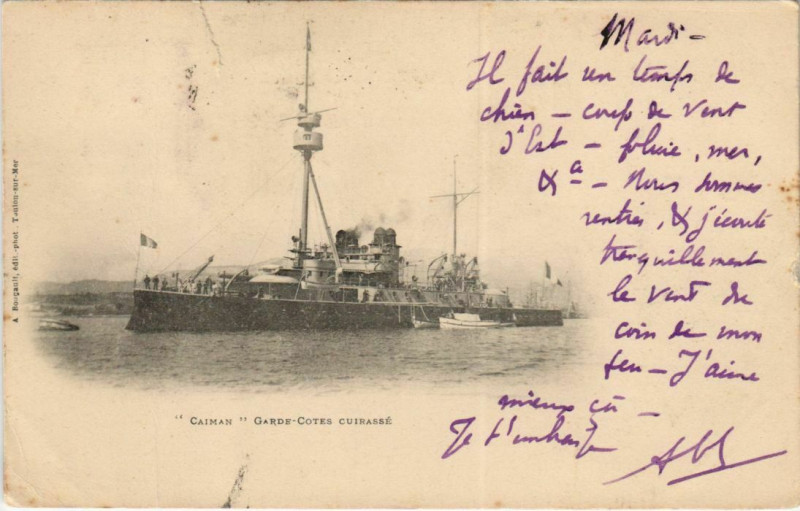 Mardi -
Il fait un temps de
chien - coup de vent
d'Est - pluie, mer,
&a - Nous sommes
rentrés, & j'écoute
tranquillement
le vent du
coin de mon
feu - J'aime
mieux çà -
Je t'embrasse
A. Bougault, édit.-phot. Toulon-sur-Mer
" CAIMAN " GARDE-COTES CUIRASSÉ